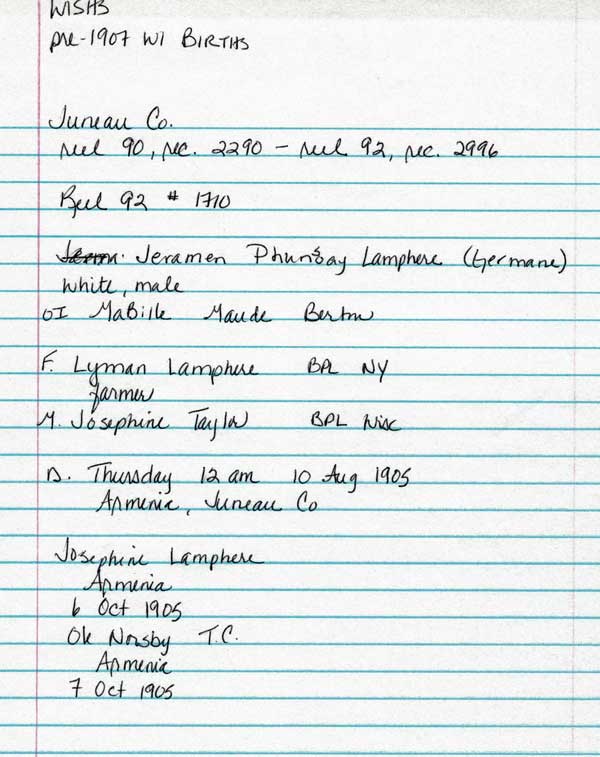 WISHS
pre-1907 WI BIRTHS
Juneau Co.
reel 90, rec. 2290 – reel 92, rec. 2996
Reel 92 # 1710
Jeramen Phunzay Lamphere (Germane)
white, male
OI MaBille Maude Berton
F. Lyman Lamphere BPL NY
farmer
M. Josephine Taylor BPL Wisc
D. Thursday 12 am 10 Aug 1905
Armenia, Juneau Co
Josephine Lamphere
Armenia
6 Oct 1905
Ole Norsby T.C.
Armenia
7 Oct 1905